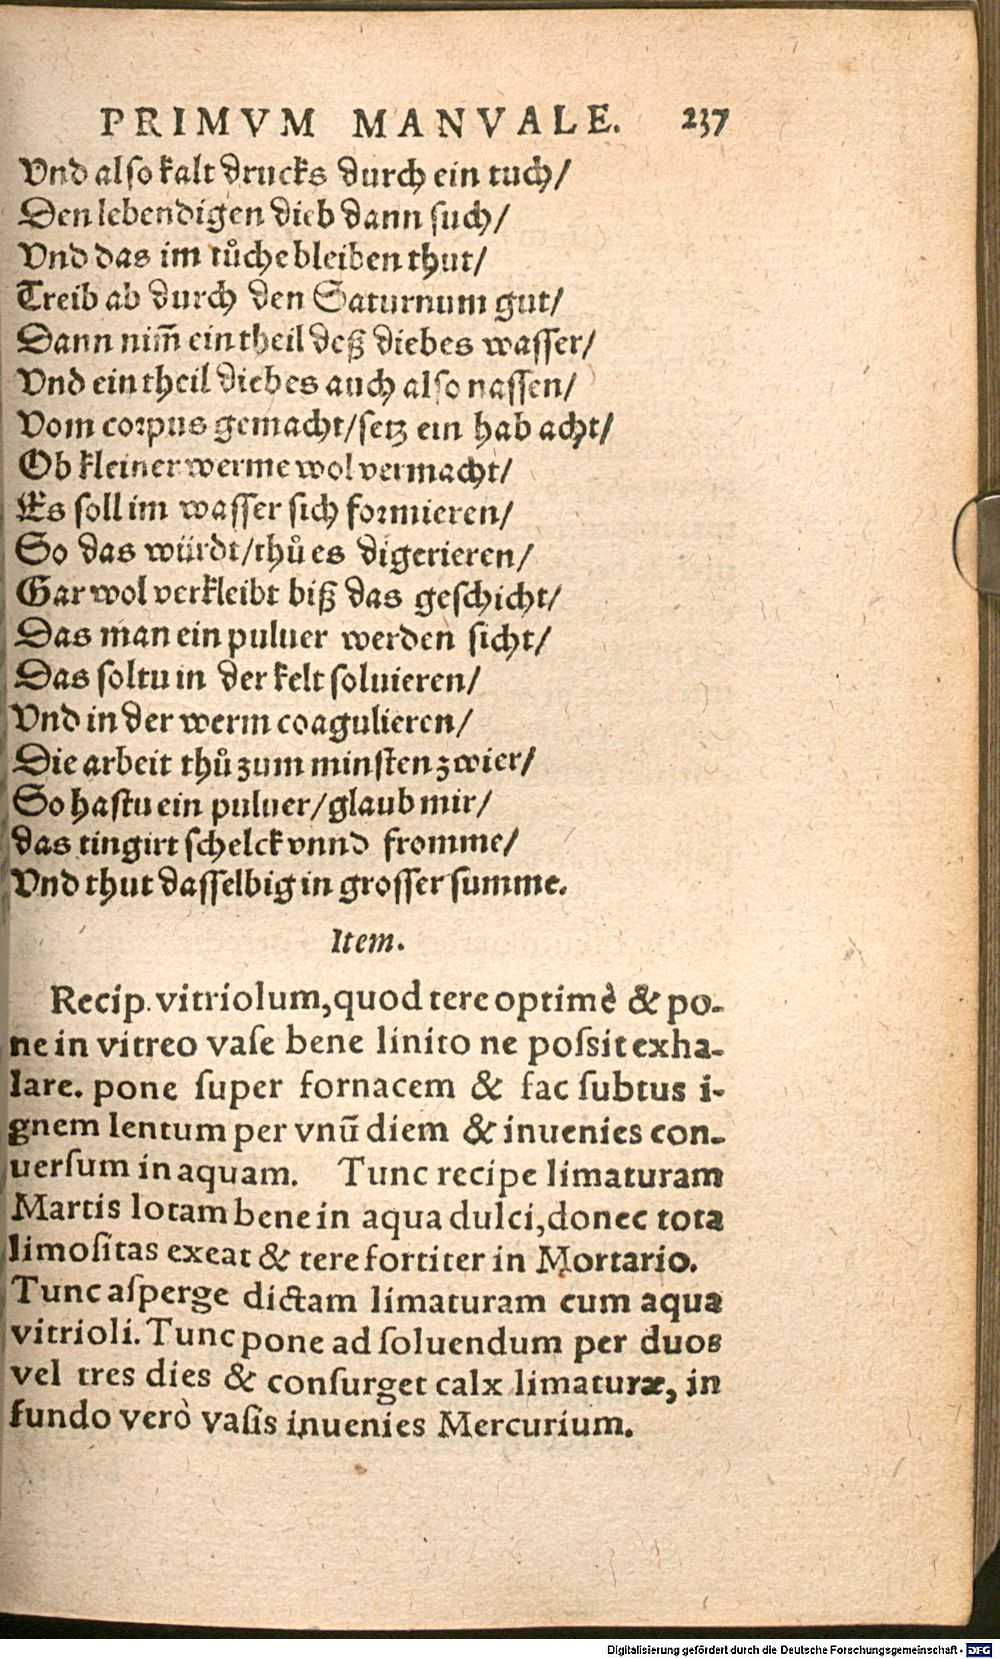 PRIMVM MANVALE. 237
Vnd also kalt drucks durch ein tuch/
Den lebendigen dieb dann such/
Vnd das im tůche bleiben thut/
Treib ab durch den Saturnum gut/
Dann nim̃ ein theil deß diebes wasser/
Vnd ein theil diebes auch also nassen/
Vom corpus gemacht/setz ein hab acht/
Ob kleiner werme wol vermacht/
Es soll im wasser sich formieren/
So das würdt/thů es digerieren/
Gar wol verkleibt biß das geschicht/
Das man ein puluer werden sicht/
Das soltu in der kelt soluieren/
Vnd in der werm coagulieren/
Die arbeit thů zum minsten zwier/
So hastu ein puluer/glaub mir/
das tingirt schelck vnnd fromme/
Vnd thut dasselbig in grosser summe.
Item.
Recip. vitriolum, quod tere optimè & po-
ne in vitreo vase bene linito ne possit exha-
lare. pone super fornacem & fac subtus i-
gnem lentum per vnũ diem & inuenies con-
uersum in aquam. Tunc recipe limaturam
Martis lotam bene in aqua dulci, donec tota
limositas exeat & tere fortiter in Mortario.
Tunc asperge dictam limaturam cum aqua
vitrioli. Tunc pone ad soluendum per duos
vel tres dies & consurget calx limaturæ, in
fundo verò vasis inuenies Mercurium.
Digitalisierung gefördert durch die Deutsche Forschungsgemeinschaft - DFG